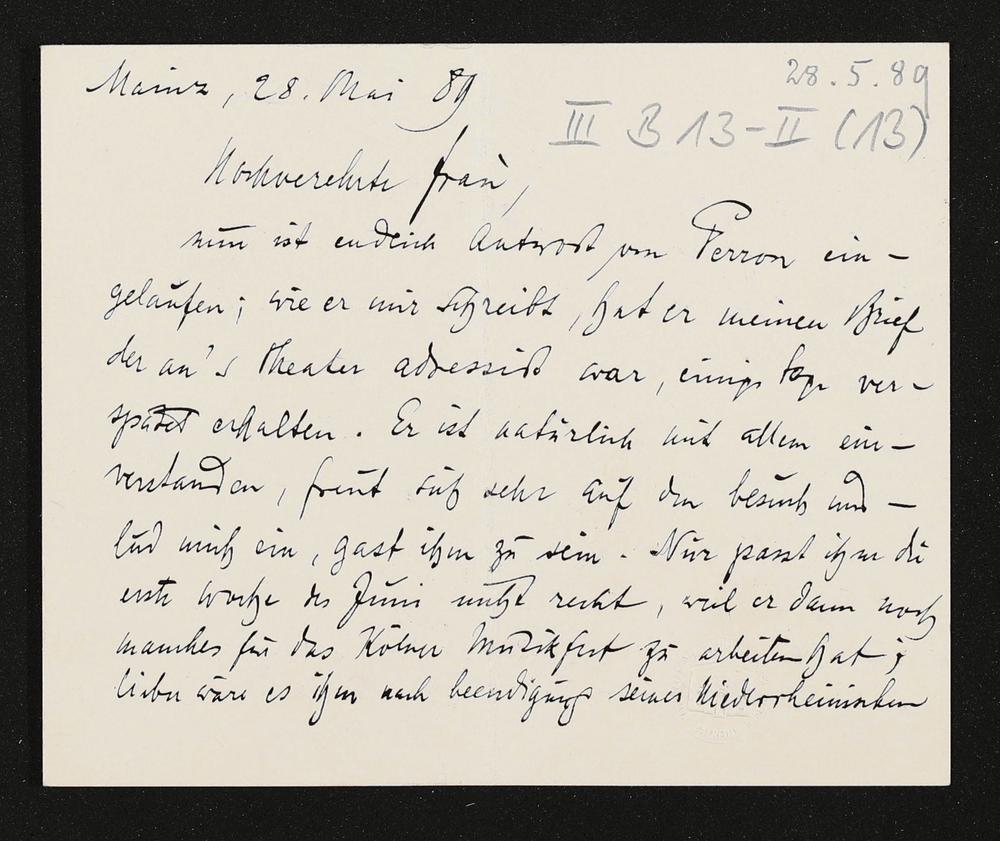 28.5.89
III B 13-II (13)
Mainz, 28. Mai 89
Hochverehrte Frau,
nun ist endlich Antwort von Perron ein-
gelaufen; wie er mir schreibt, hat er meinen Brief
der an's Theater adressirt war, einige tage ver-
spätet erhalten. Er ist natürlich mit allem ein-
verstanden, freut sich sehr auf den besuch und -
lud mich ein, gast ihm zu sein. Nur passt ihm die
erste woche des Juni nicht recht, weil er dann noch
manches für das Kölner Musikfest zu arbeiten hat;
lieber wäre es ihm nach beendigung seines Niederrheinischen